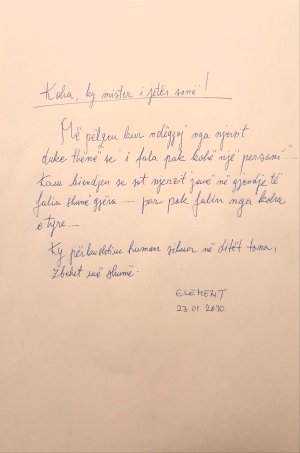 Koha, ky mister i jetës sonë!
Më pëlqen kur ndëgjoj nga njerzit
duke thënë se "i fala pak kohë një personi"....
Kam bindjen se sot njerzit janë në gjendje të
falin shumë gjëra .... por pak falin nga koha
e tyre ....
Ky përkushtim human sikur në ditët tona,
zbehet më shumë.
ELEMENT
23.01.2020.